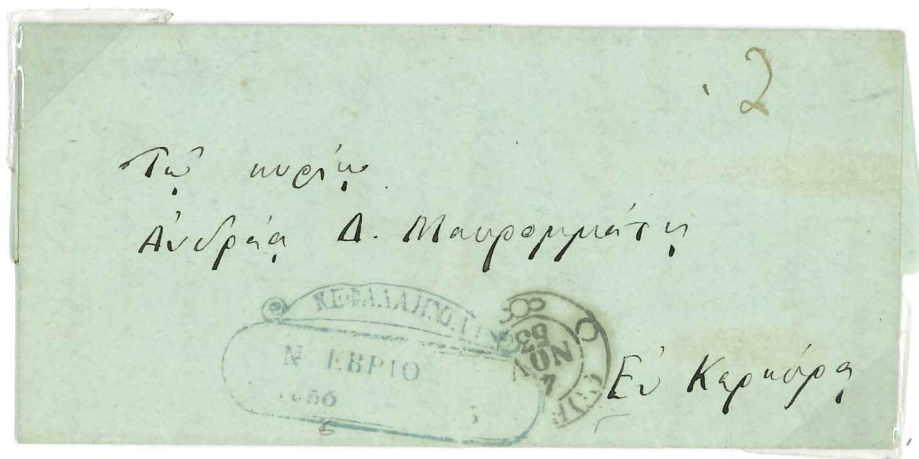 2
Τῷ κυρίῳ
Ἀνδρέᾳ Δ. Μαυρομμάτῃ
ΚΕΦΑΛΛΗΝΙΑ
Ν ΕΒΡΙΟ
NOV
Ἐν Κερκύρᾳ